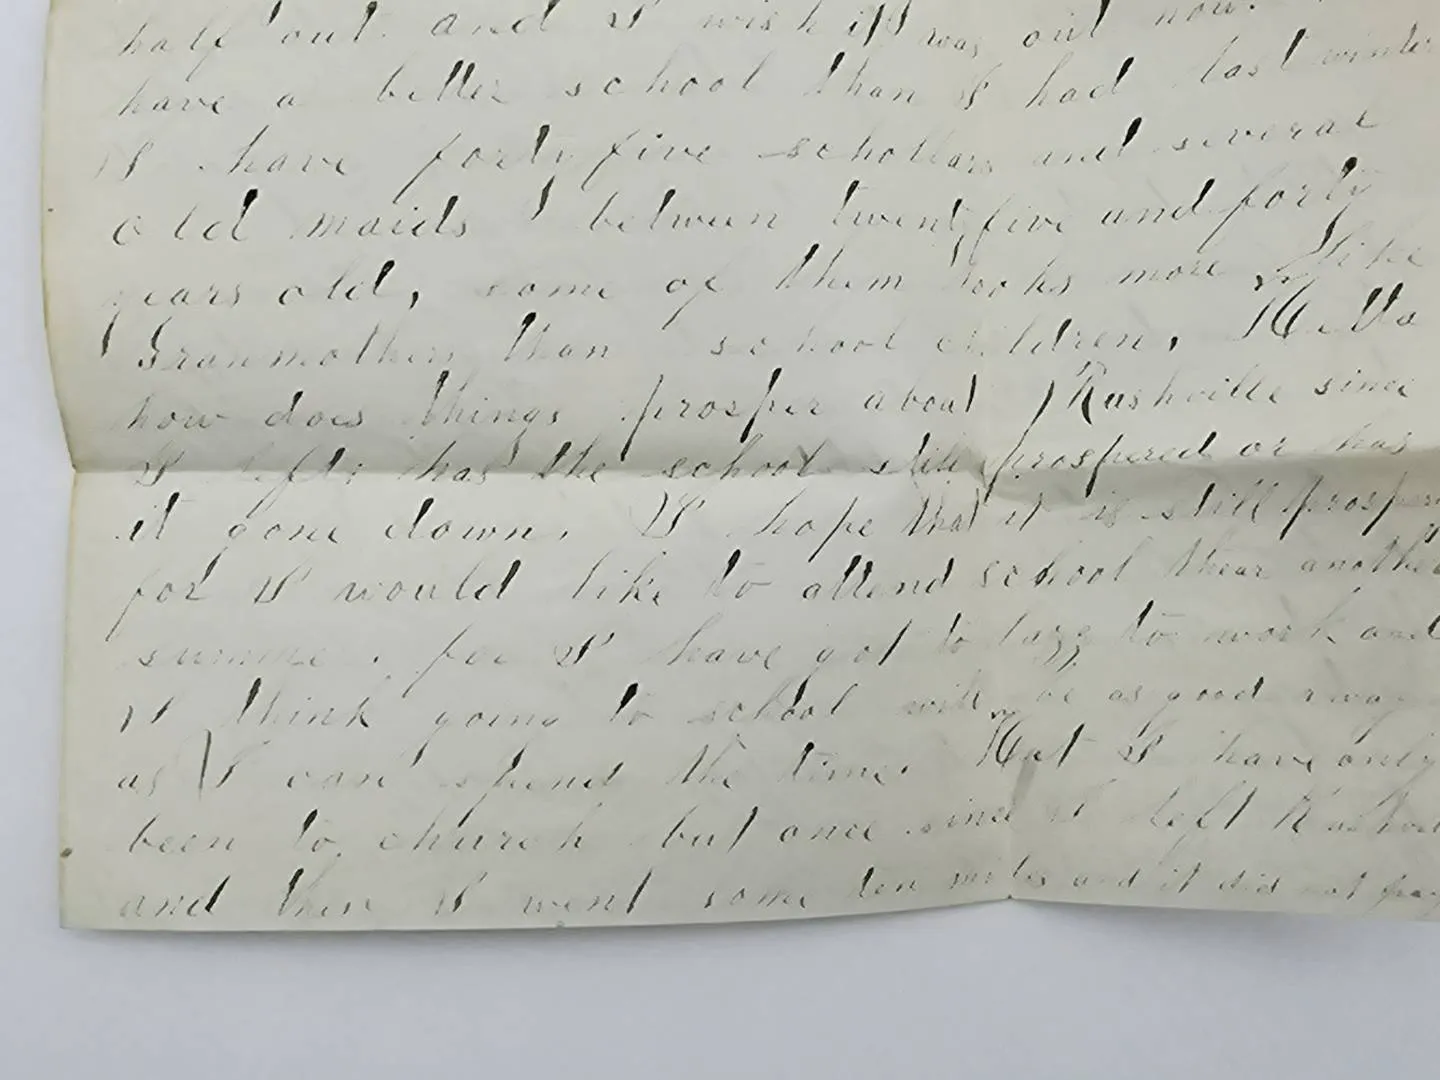 half out. and I wish it was out now.
have a better school than I had last winter
I have forty five schollars and several
old maids between twenty five and forty
years old, some of them looks more like
Granmothers than school children,
how does things prosper about Rushville since
I left, has the school still prospered or has
it gone down. I hope that it is still prosper
for I would like to attend school thear another
summe. for I have got to lazy to work and
I think going to school will be as good a way
as I can spend the time. But I have only
been to church but once since I left Rushvi
and then I went some ten miles and it did not pay